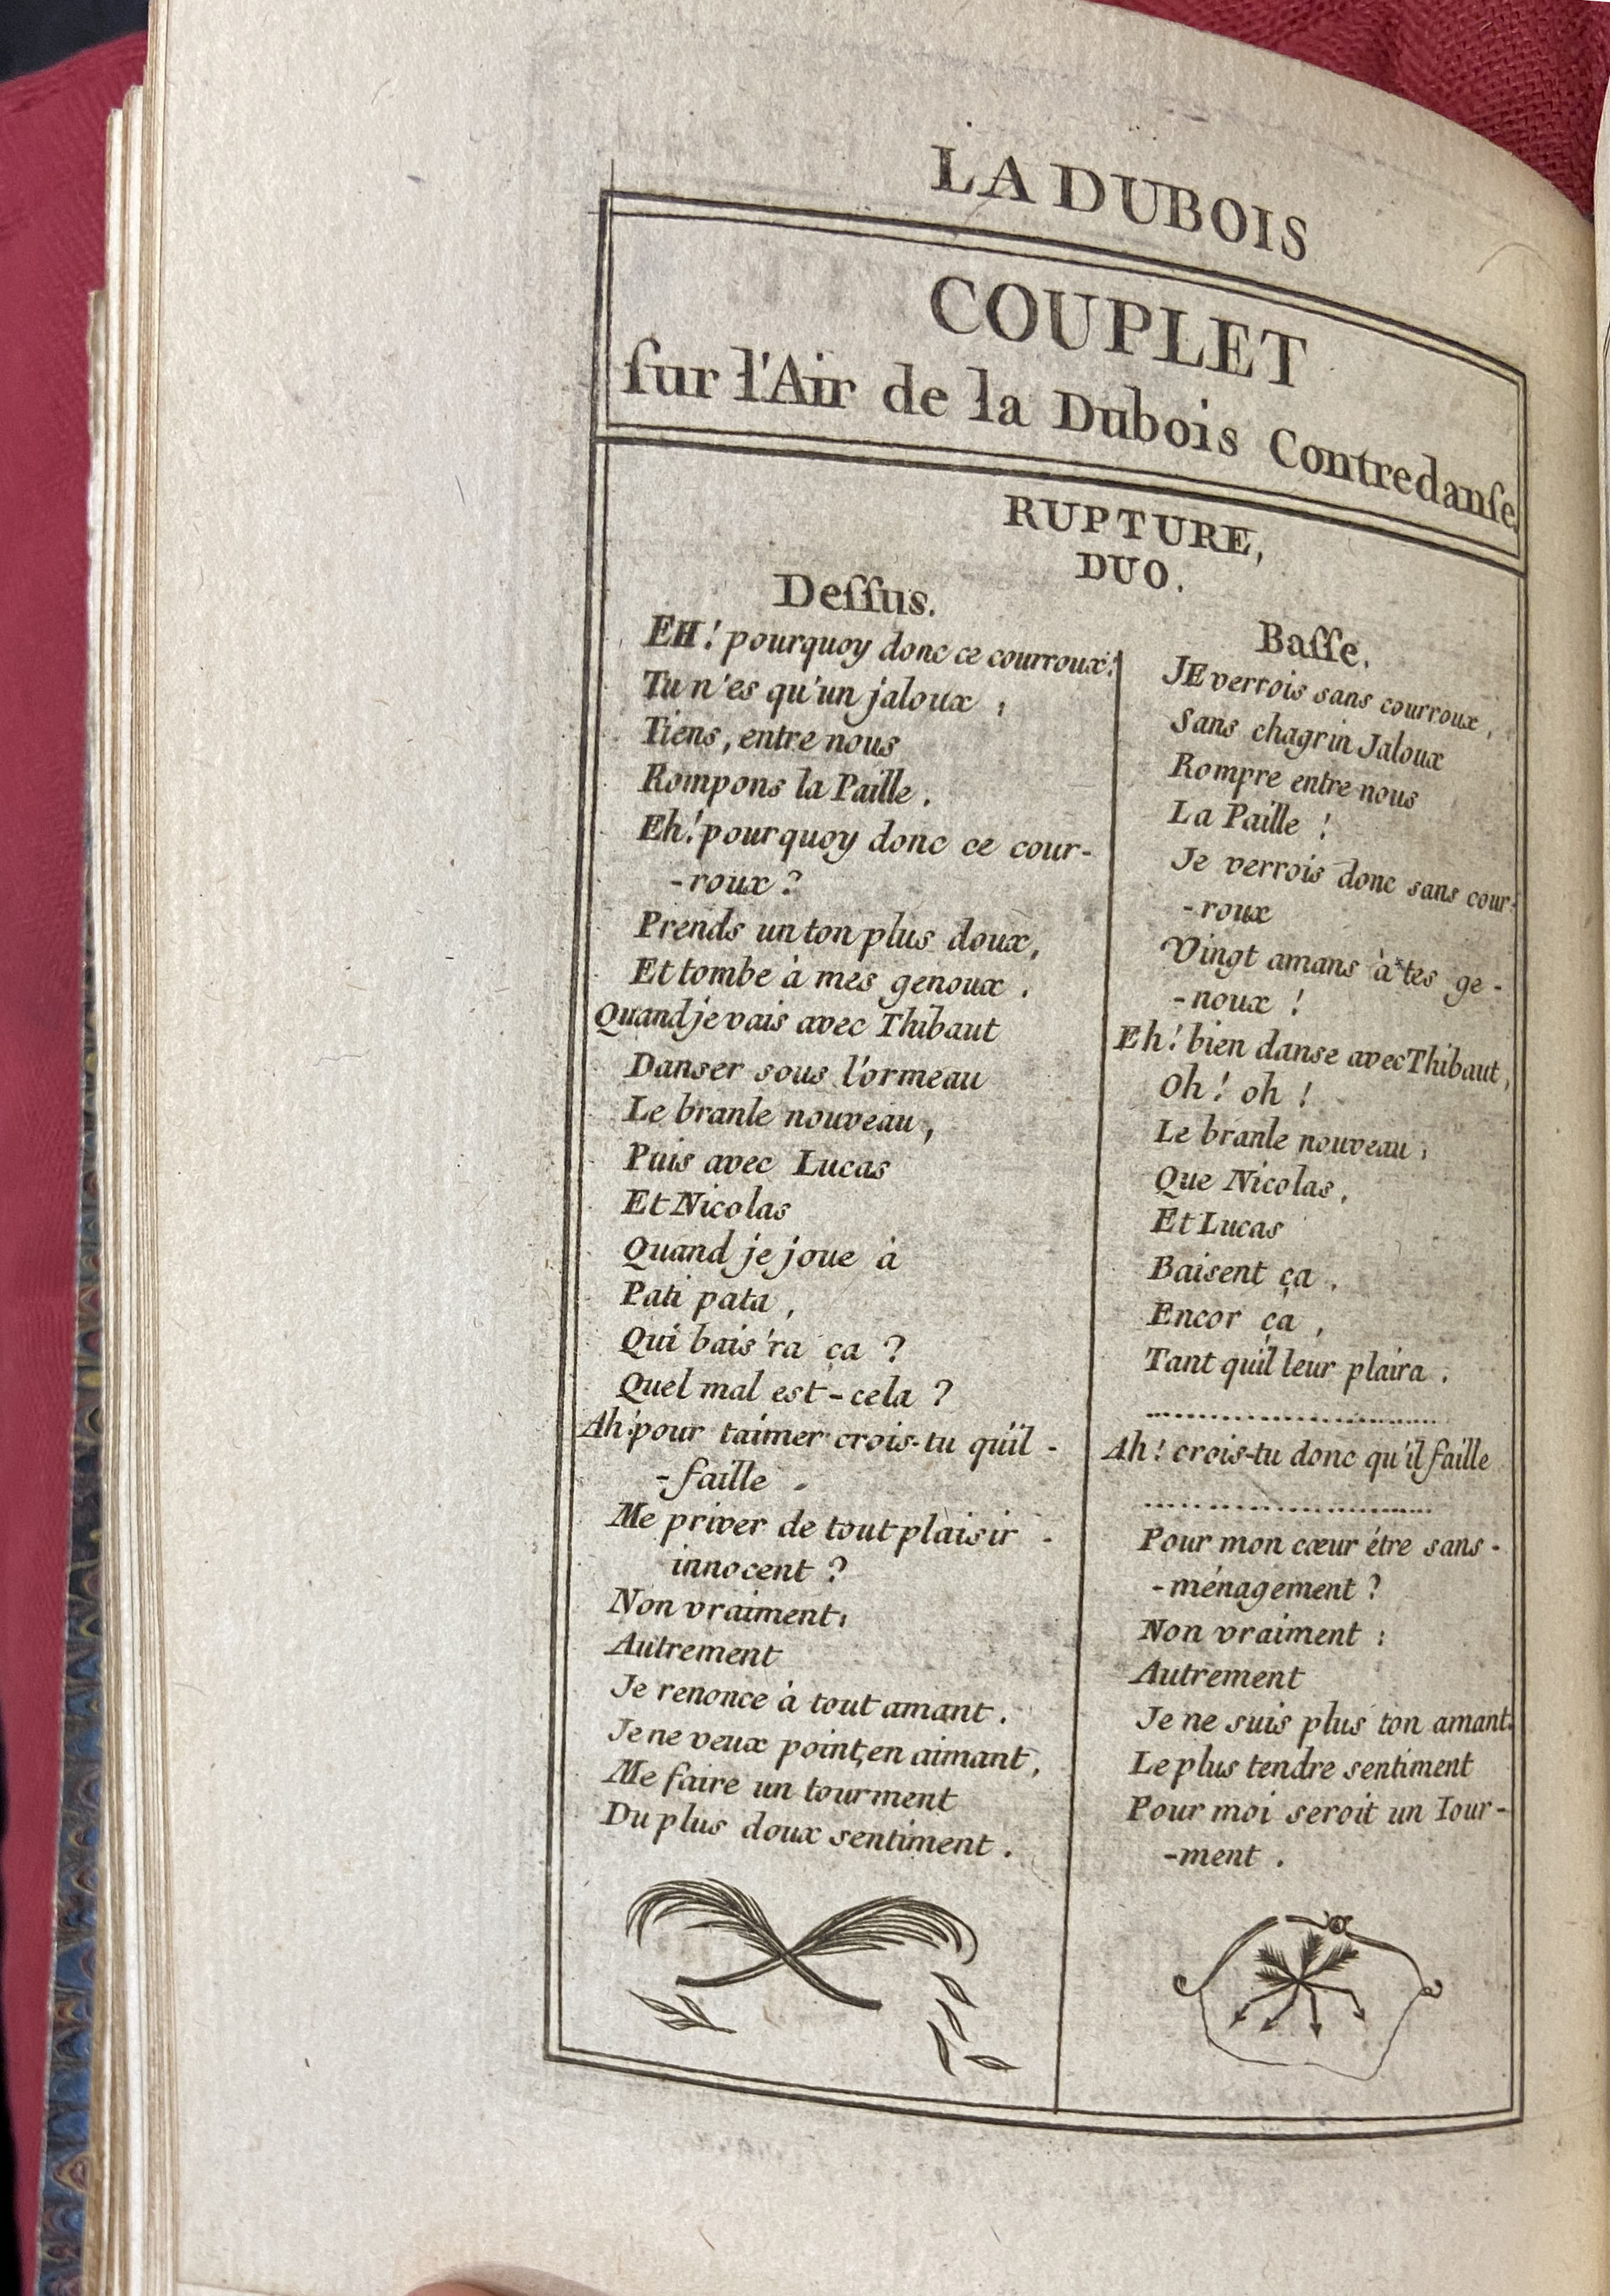 LA DUBOIS
COUPLET
ſur l'Air de la Dubois Contredanſe.
RUPTURE,
DUO.
Deſſus.
EH! pourquoy donc ce courroux!
Tu n'es qu'un jaloux ;
Tiens, entre nous
Rompons la Paille .
Eh! pourquoy donc ce cour-
-roux ?
Prends un ton plus doux,
Et tombe à mes genoux .
Quand je vais avec Thibaut
Danser sous l'ormeau
Le branle nouveau ,
Puis avec Lucas
Et Nicolas
Quand je joue à
Pati pata ,
Qui bais'ra ça ?
Quel mal est-cela ?
Ah! pour t'aimer crois-tu qu'il -
-faille .
Me priver de tout plaisir -
innocent ?
Non vraiment;
Autrement
Je renonce à tout amant .
Je ne veux point, en aimant ,
Me faire un tourment
Du plus doux sentiment .
Baſſe.
JE verrois sans courroux ,
Sans chagrin Jaloux
Rompre entre nous
La Paille !
Je verrois donc sans cour-
-roux
Vingt amans à tes ge -
-noux !
Eh! bien danse avec Thibaut,
Oh! oh !
Le branle nouveau ;
Que Nicolas ,
Et Lucas
Baisent ça ,
Encor ça ,
Tant qu'il leur plaira .
..............................
Ah! crois-tu donc qu'il faille
..............................
Pour mon cœur étre sans -
-ménagement ?
Non vraiment :
Autrement
Je ne suis plus ton amant.
Le plus tendre sentiment
Pour moi seroit un Tour-
-ment .